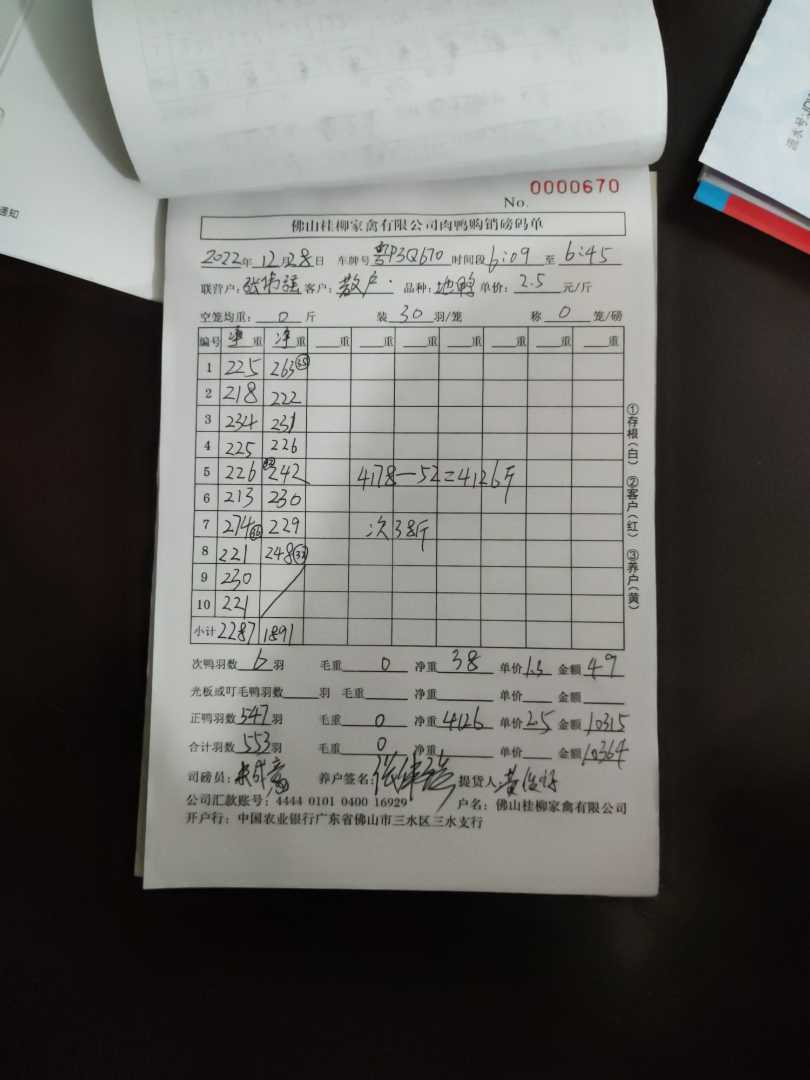 流水号
通知
No. 0000670
佛山桂柳家禽有限公司肉鸭购销磅码单
2022年 12月28日 车牌号 粤P3Q670 时间段 6:09 至 6:45
联营户: 张伟强 客户: 散户. 品种: 地鸭 单价: 2.5 元/斤
空笼均重: 0 斤 装 30 羽/笼 称 0 笼/磅
编号 净重 净重 重 重 重 重 重 重 重
1 225 263 35
2 218 222
3 234 231
4 225 226
5 226 242 4178-52=4126斤
6 213 230
7 274 36 229 次38斤
8 221 248 32
9 230
10 221
小计 2287 1891
①存根(白) ②客户(红) ③养户(黄)
次鸭羽数 6 羽 毛重 0 净重 38 单价 1.3 金额 49
光板或叮毛鸭羽数 羽 毛重 净重 单价 金额
正鸭羽数 547 羽 毛重 0 净重 4126 单价 2.5 金额 10315
合计羽数 553 羽 毛重 0 净重 单价 金额 10364
司磅员: 养户签名: 张伟强 提货人:
公司汇款账号: 4444 0101 0400 16929 户名: 佛山桂柳家禽有限公司
开户行: 中国农业银行广东省佛山市三水区三水支行